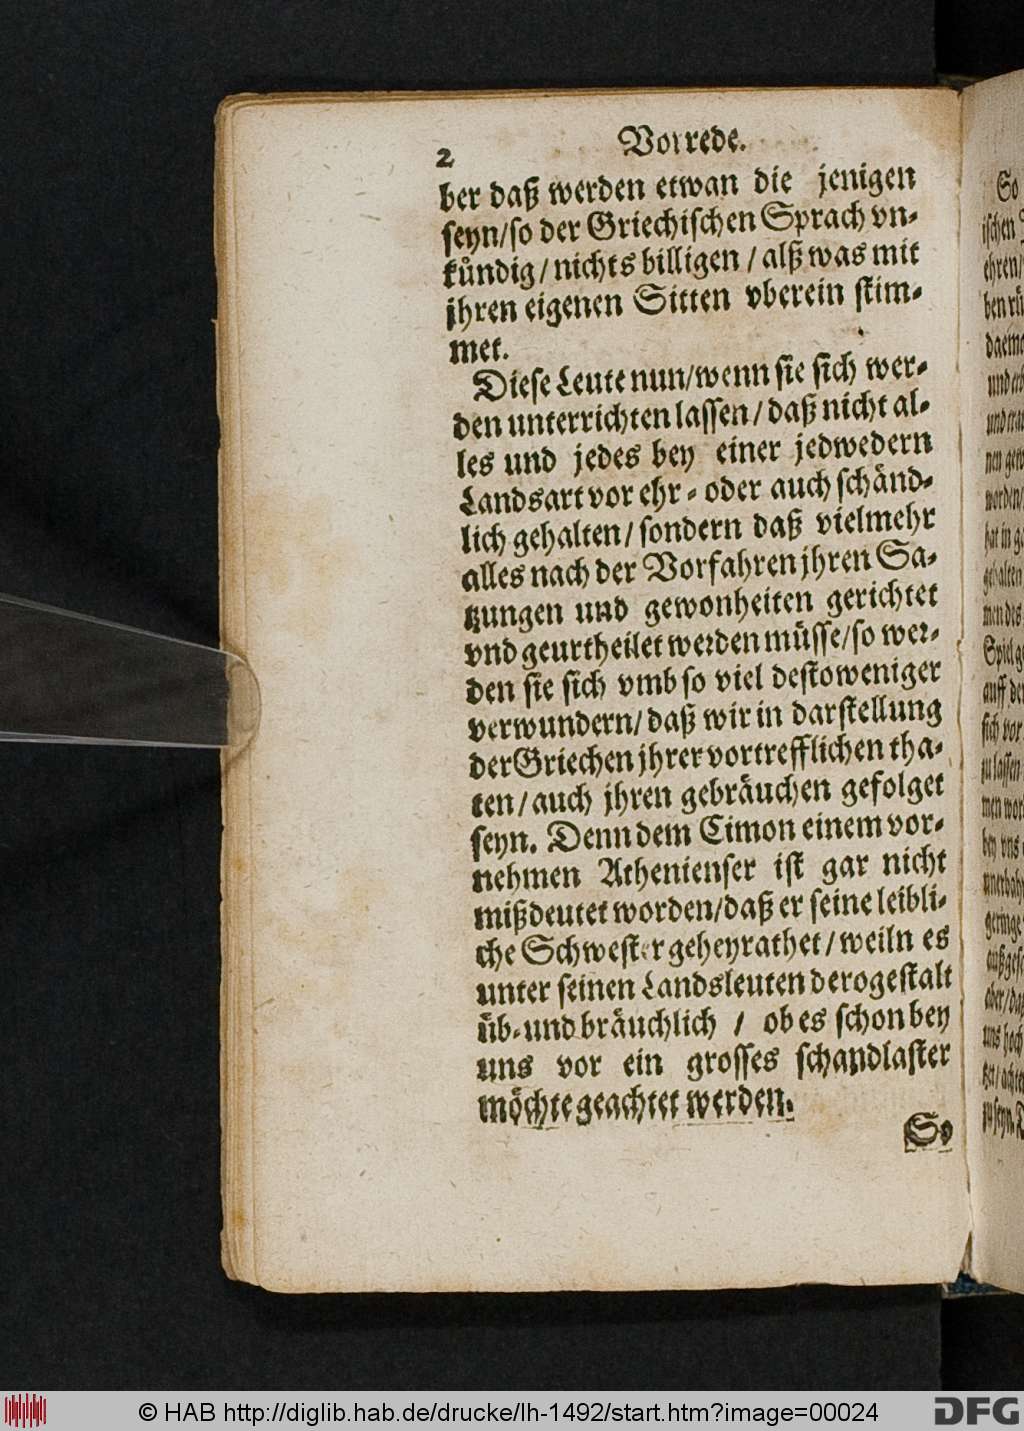 2 Vorrede.
ber daß werden etwan die jenigen
seyn/so der Griechischen Sprach vn-
kündig/nichts billigen/alß was mit
jhren eigenen Sitten vberein stim-
met.
Diese Leute nun/wenn sie sich wer-
den unterrichten lassen/daß nicht al-
les und jedes bey einer jedwedern
Landsart vor ehr- oder auch schänd-
lich gehalten/sondern daß vielmehr
alles nach der Vorfahren jhren Sa-
tzungen und gewonheiten gerichtet
vnd geurtheilet werden müsse/so wer-
den sie sich vmb so viel destoweniger
verwundern/daß wir in darstellung
der Griechen jhrer vortrefflichen tha-
ten/auch jhren gebräuchen gefolget
seyn. Denn dem Cimon einem vor-
nehmen Athenienser ist gar nicht
mißdeutet worden/daß er seine leibli-
che Schwester geheyrathet/weiln es
unter seinen Landsleuten derogestalt
üb- und bräuchlich / ob es schon bey
uns vor ein grosses schandlaster
möchte geachtet werden.
So
So
ischen
ehren/
© HAB http://diglib.hab.de/drucke/lh-1492/start.htm?image=00024
DFG